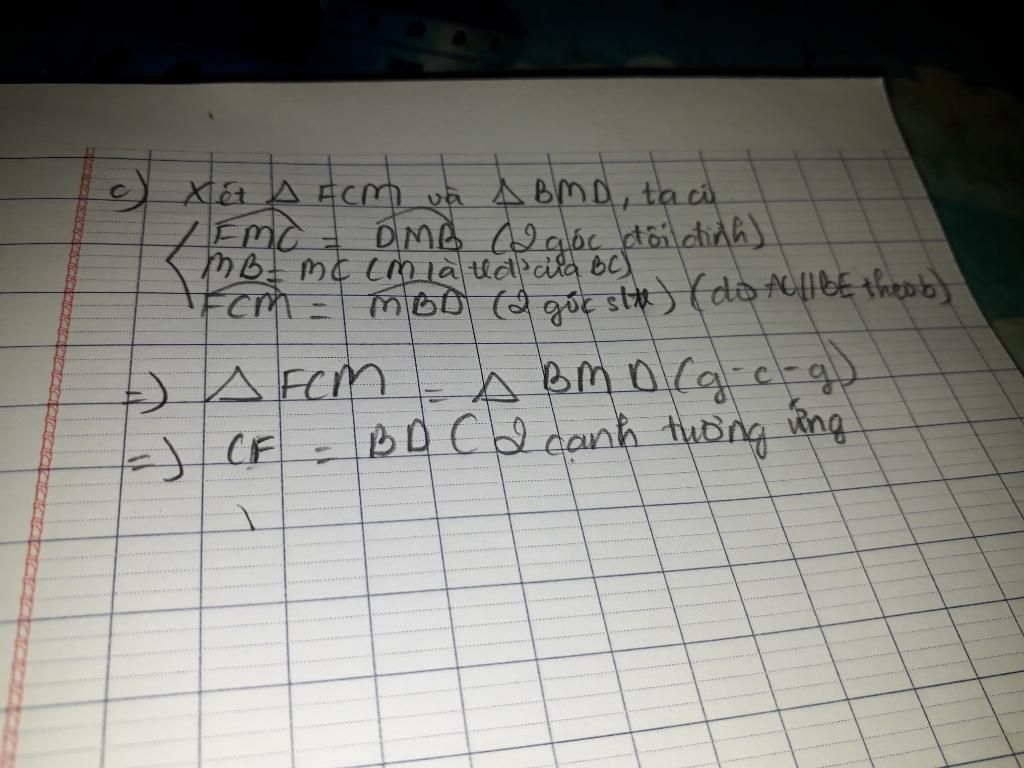 c) Xét Δ FCM và Δ BMD, ta có
FMC = DMB (2 góc đối đỉnh)
MB = MC (M là tđ' của BC)
FCM = MBD (2 góc slt) (do AC//BE theo b)
=) Δ FCM = Δ BMD (g-c-g)
=) CF = BD (2 cạnh tương ứng